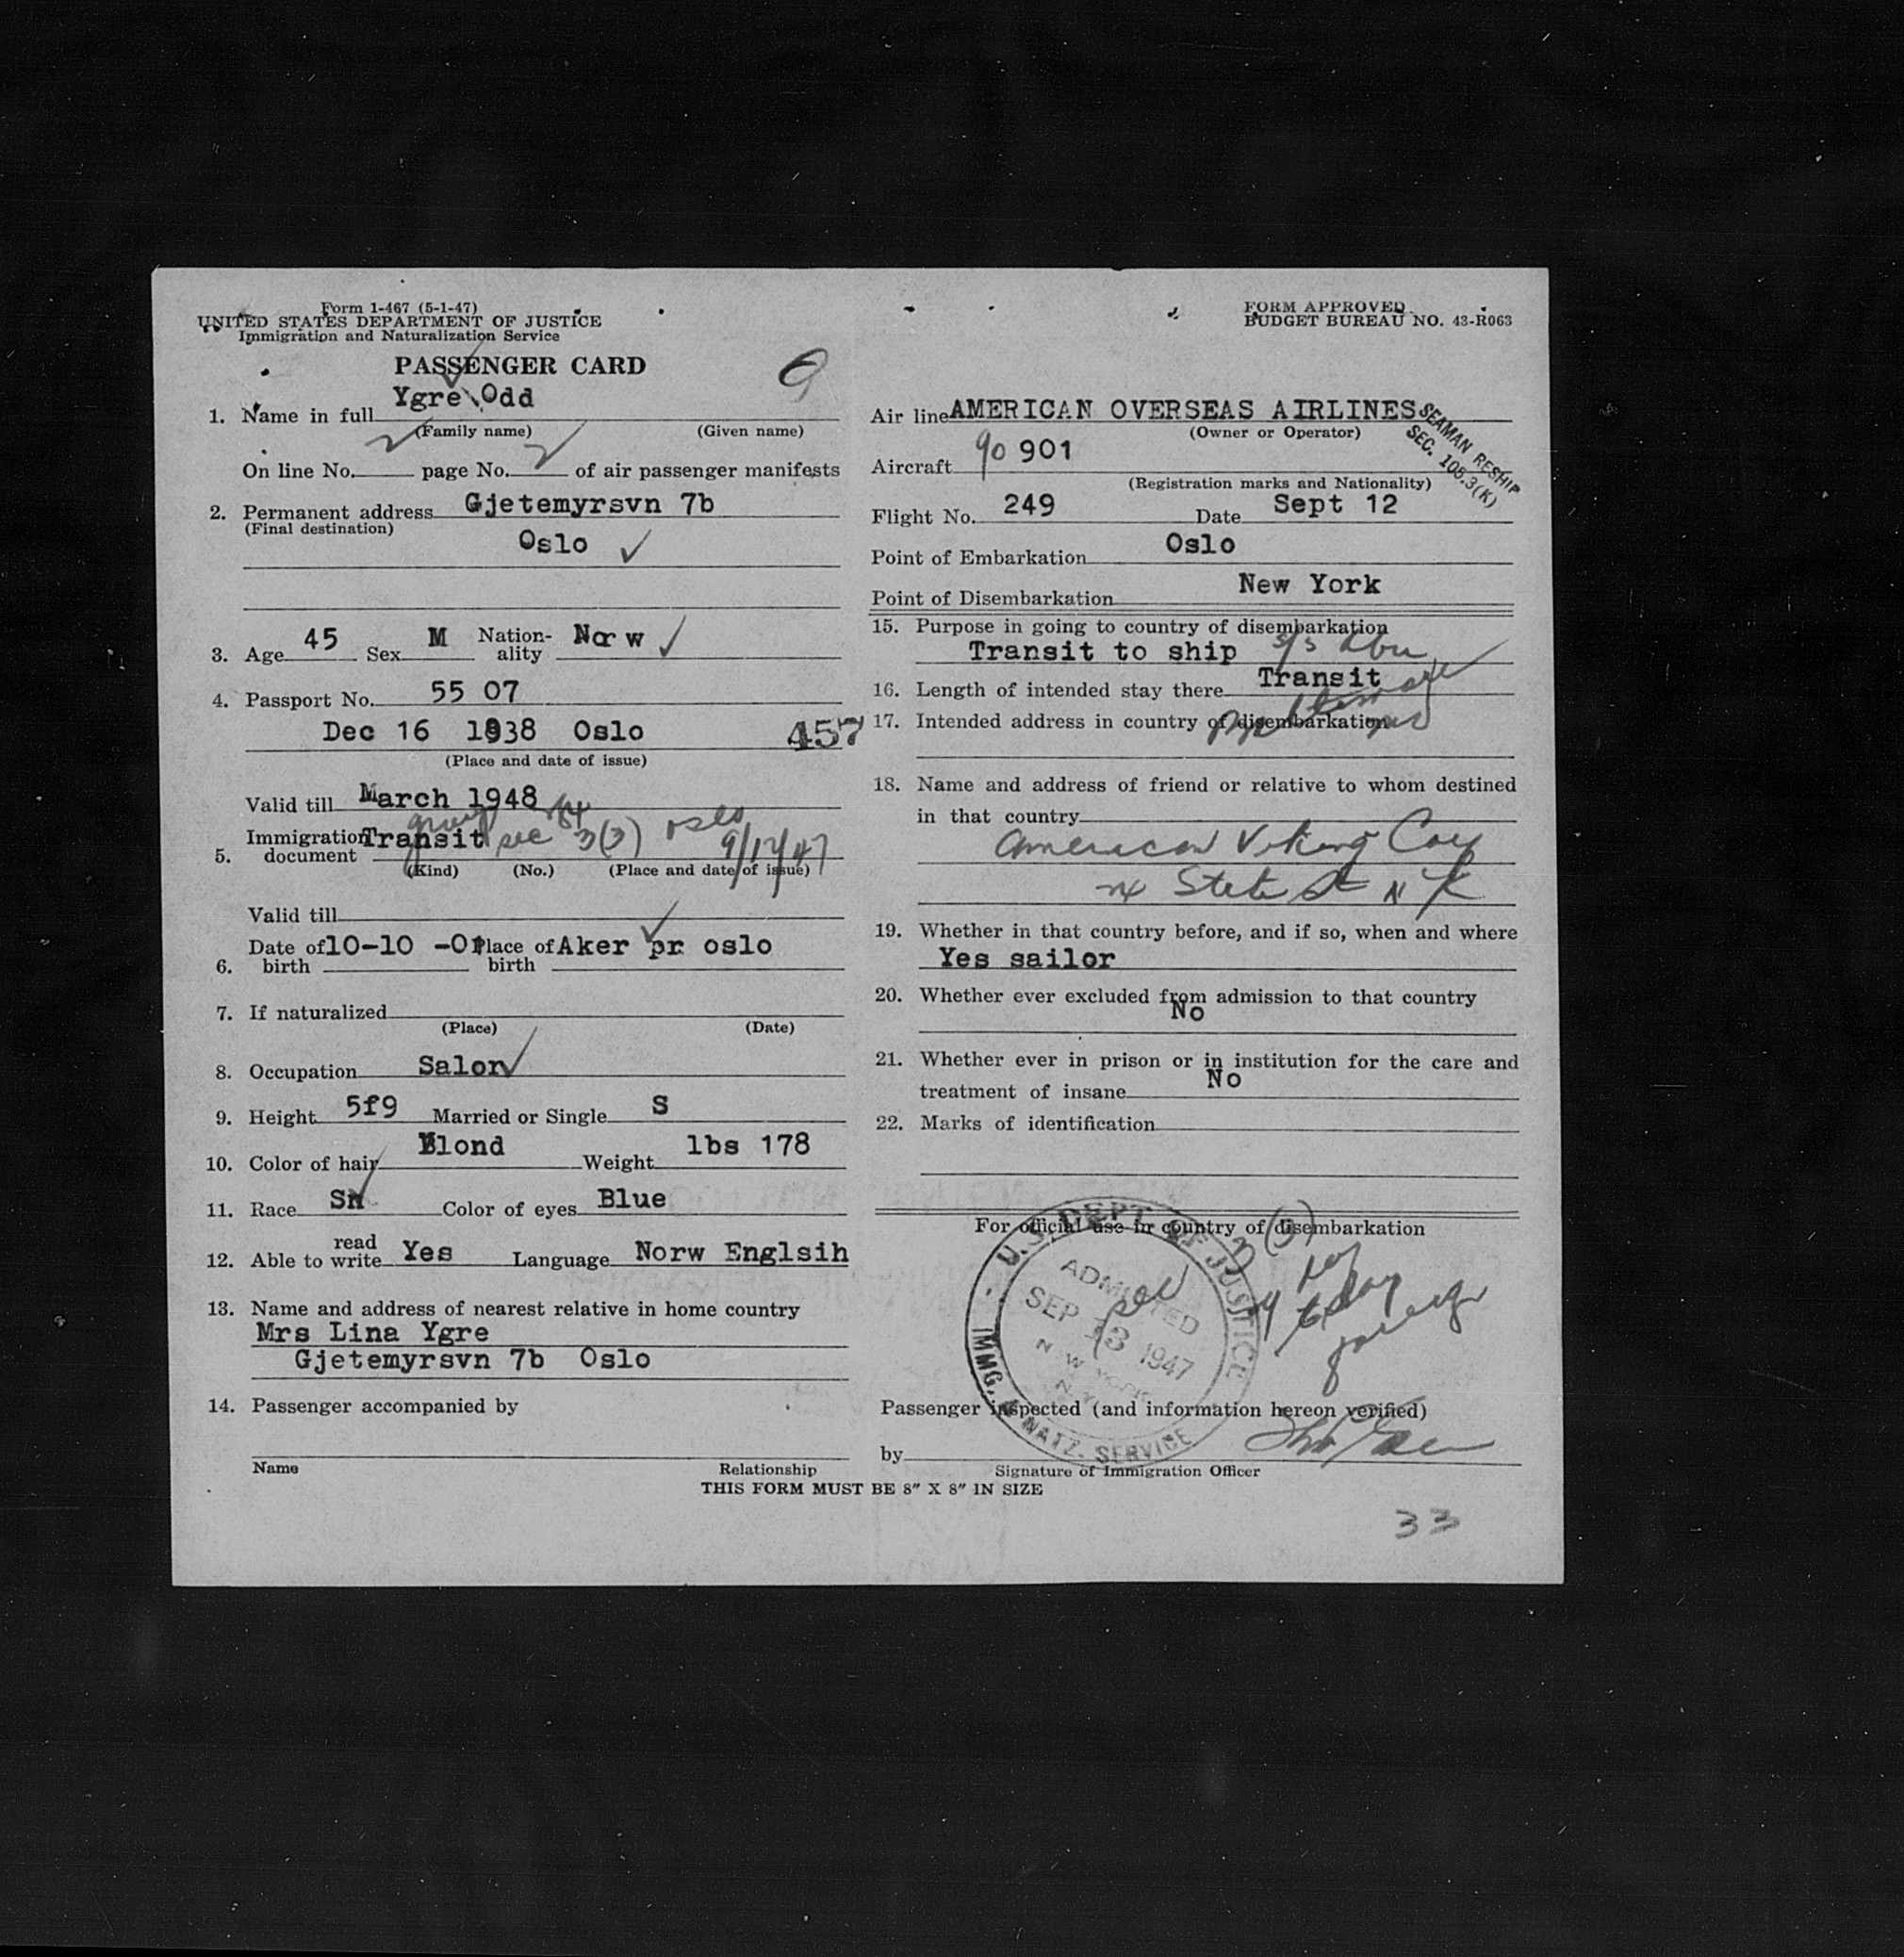 Form 1-467 (5-1-47)
UNITED STATES DEPARTMENT OF JUSTICE
Immigration and Naturalization Service
PASSENGER CARD
9
1. Name in full Ygre Odd
(Family name) (Given name)
On line No. 2 page No. 2 of air passenger manifests
2. Permanent address Gjetemyrsvn 7b
(Final destination)
Oslo
3. Age 45 Sex M Nation-ality Norw
4. Passport No. 55 07
Dec 16 1938 Oslo 457
(Place and date of issue)
Valid till March 1948
5. Immigration document Transit sec 3(3) oslo 9/12/47
(Kind) (No.) (Place and date of issue)
Valid till
6. Date of birth 10-10 -01 Place of birth Aker pr oslo
7. If naturalized
(Place) (Date)
8. Occupation Salor
9. Height 5f9 Married or Single S
10. Color of hair Blond Weight lbs 178
11. Race Sn Color of eyes Blue
12. Able to read write Yes Language Norw Englsih
13. Name and address of nearest relative in home country
Mrs Lina Ygre
Gjetemyrsvn 7b Oslo
14. Passenger accompanied by
Name Relationship
FORM APPROVED
BUDGET BUREAU NO. 43-R063
Air line AMERICAN OVERSEAS AIRLINES
(Owner or Operator)
SEAMAN RESHIP
SEC. 105.3(K)
Aircraft 90 901
(Registration marks and Nationality)
Flight No. 249 Date Sept 12
Point of Embarkation Oslo
Point of Disembarkation New York
15. Purpose in going to country of disembarkation
Transit to ship s/s
16. Length of intended stay there Transit
17. Intended address in country of disembarkation
18. Name and address of friend or relative to whom destined
in that country
American Viking Coy
State St N Y
19. Whether in that country before, and if so, when and where
Yes sailor
20. Whether ever excluded from admission to that country
No
21. Whether ever in prison or in institution for the care and
treatment of insane No
22. Marks of identification
For official use in country of disembarkation
U.S. DEPT. OF JUSTICE
ADMITTED
SEP 13 1947
IMMG. & NATZ. SERVICE
sec 3(3)
Passenger inspected (and information hereon verified)
by
Signature of Immigration Officer
THIS FORM MUST BE 8" X 8" IN SIZE
33